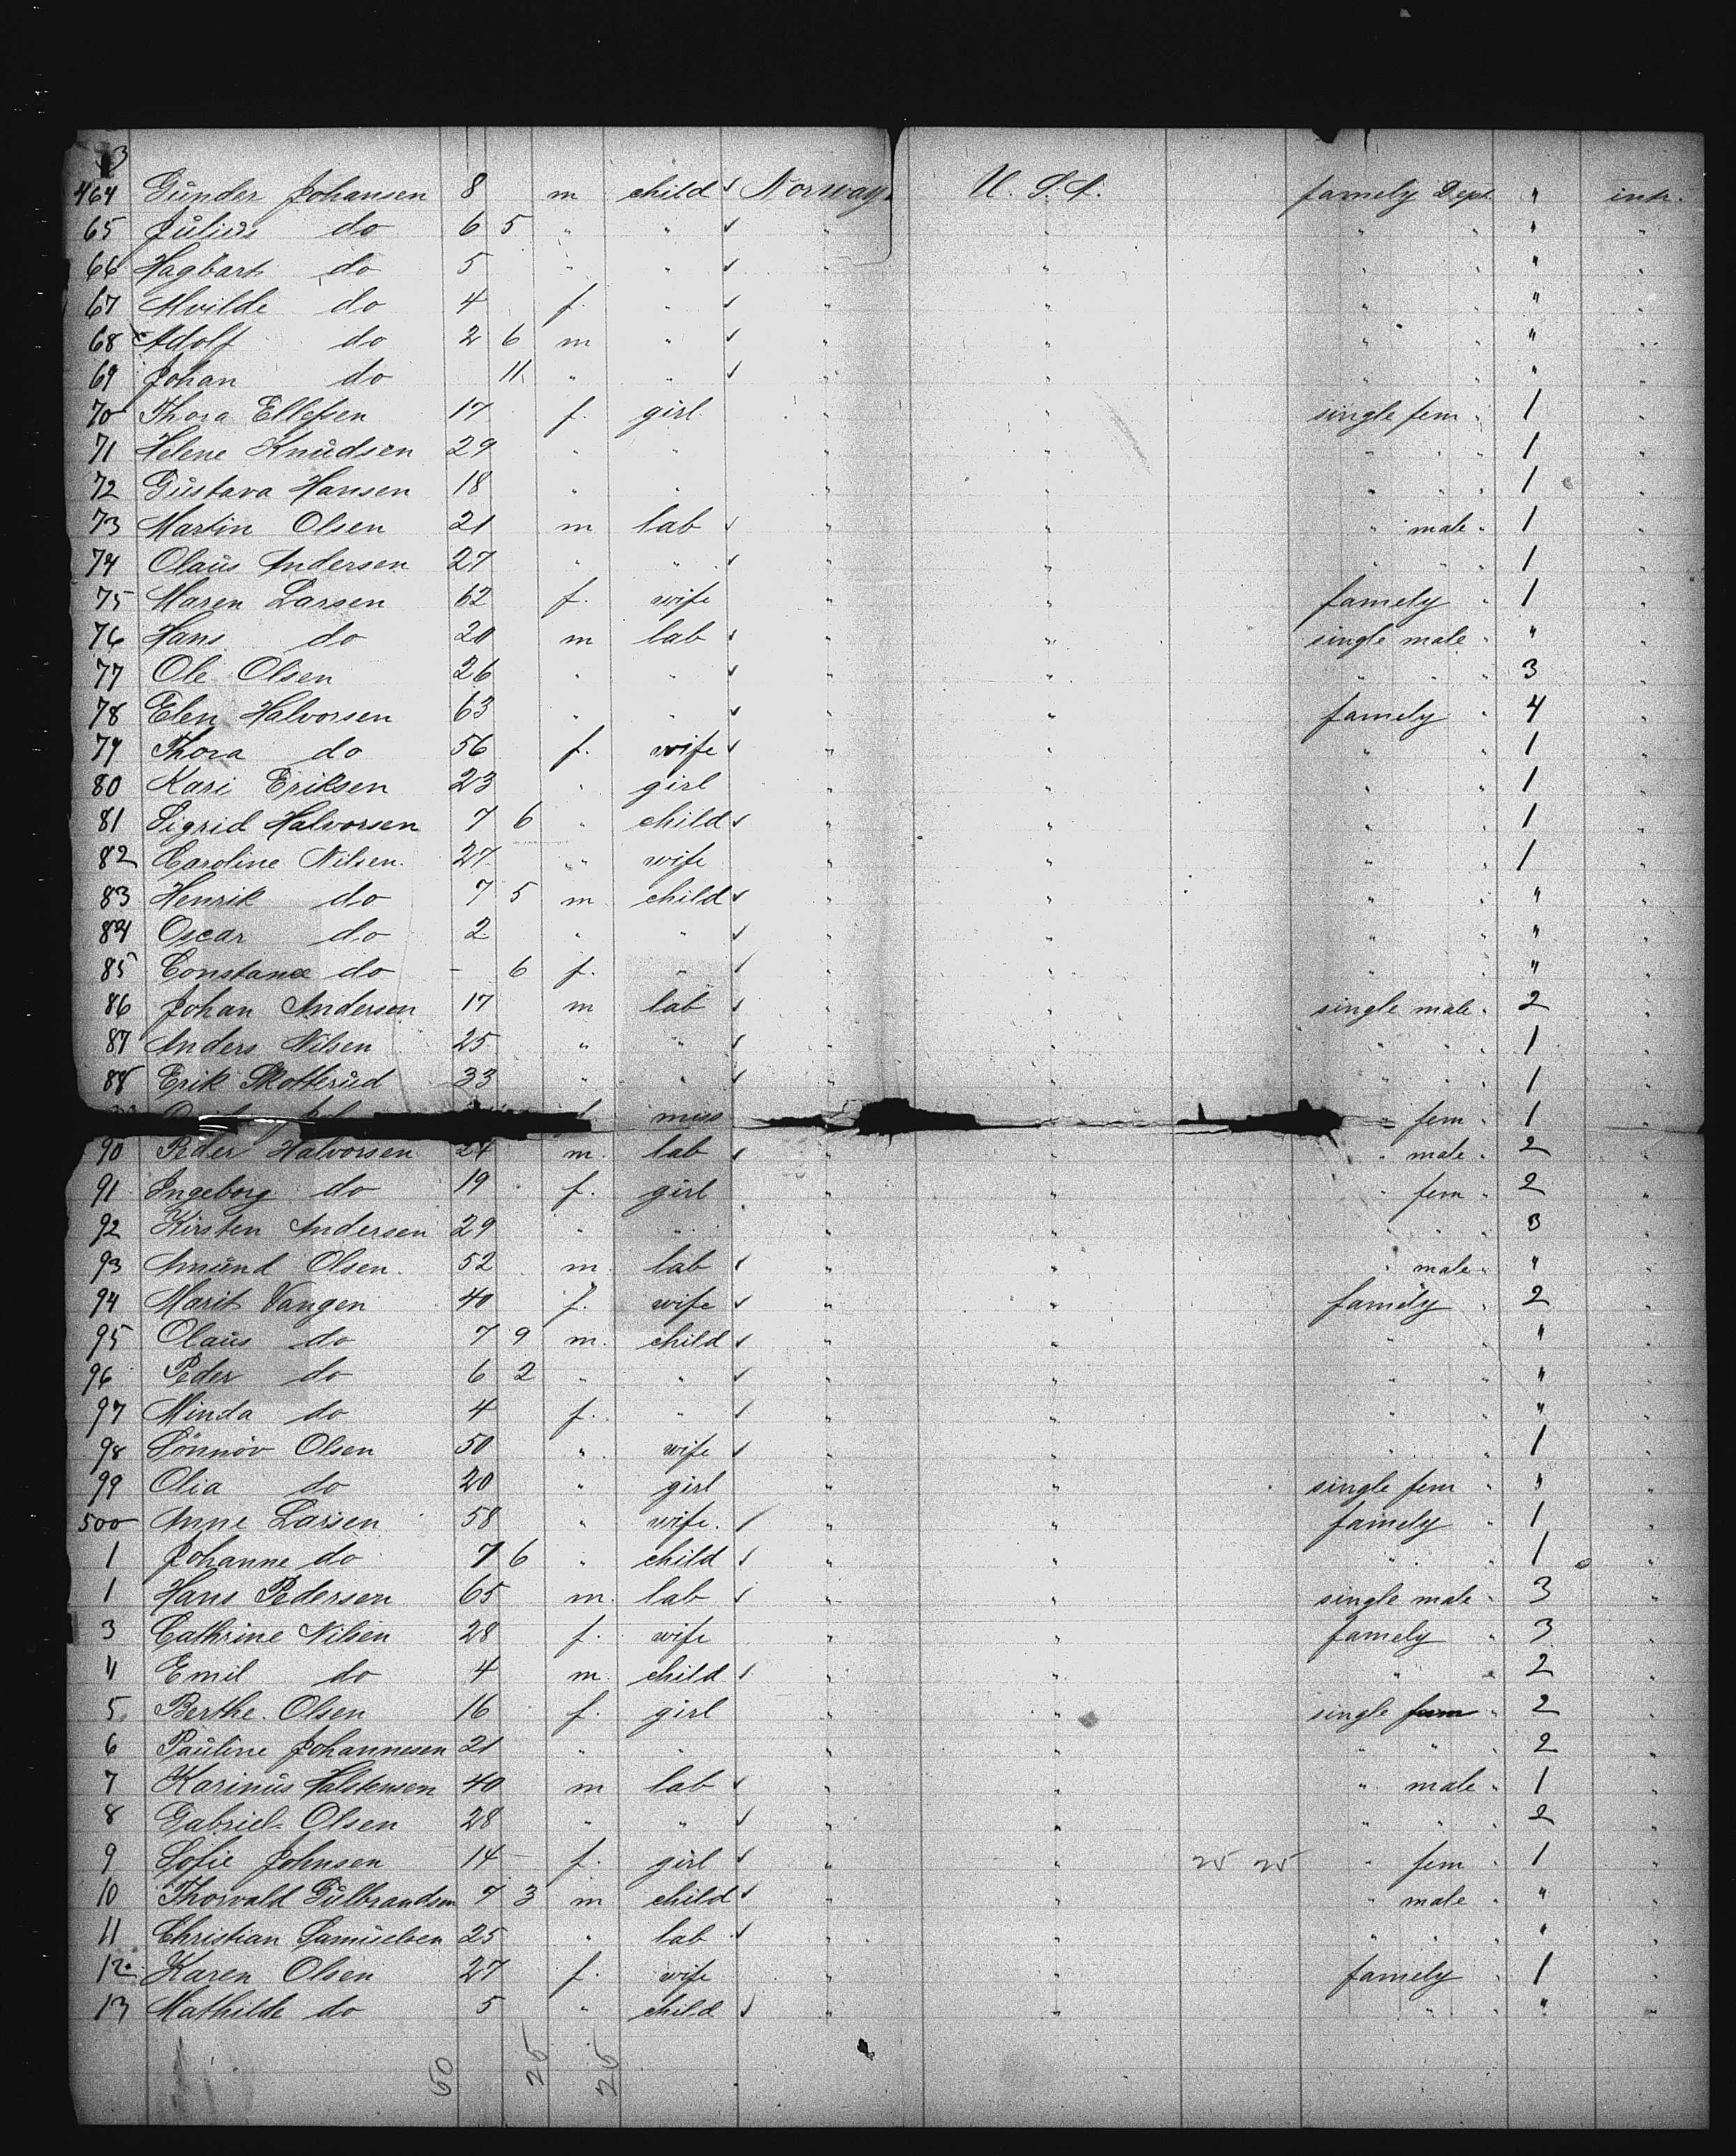 3
464 Gunder Johansen 8 m child ✓ Norway U. S. A. famely Dept. " intr.
65 Julius do 6 5 " " ✓ " " " " " "
66 Hagbart do 5 " " ✓ " " " " " "
67 Alvilde do 4 f. " ✓ " " " " " "
68 Adolf do 2 6 m " ✓ " " " " " "
69 Johan do 11 " " ✓ " " " " " "
70 Thora Ellefsen 17 f. girl " " single fem " 1 "
71 Helene Knudsen 29 " " " " " " " 1 "
72 Gustava Hansen 18 " " " " " " " 1 "
73 Martin Olsen 21 m lab ✓ " " " male " 1 "
74 Olaus Andersen 27 " " ✓ " " " " " 1 "
75 Maren Larsen 62 f. wife " " famely " 1 "
76 Hans do 20 m lab ✓ " " single male " " "
77 Ole Olsen 26 " " ✓ " " " " " 3 "
78 Elen Halvorsen 63 " " ✓ " " famely " 4 "
79 Thora do 56 f. wife ✓ " " " " 1 "
80 Kari Eriksen 23 " girl " " " " 1 "
81 Sigrid Halvorsen 7 6 " child ✓ " " " " 1 "
82 Caroline Nilsen 27 " wife " " " " 1 "
83 Henrik do 7 5 m child ✓ " " " " " "
84 Oscar do 2 " " ✓ " " " " " "
85 Constance do - 6 f. " ✓ " " " " " "
86 Johan Andersen 17 m lab ✓ " " single male " 2 "
87 Anders Nilsen 25 " " ✓ " " " " " 1 "
88 Erik Skotterud 33 " " ✓ " " " " " 1 "
miss " fem " 1 "
90 Peder Halvorsen m. lab ✓ " " " male " 2 "
91 Ingeborg do 19 f. girl " " " fem " 2 "
92 Kirsten Andersen 29 " " " " " " " 3 "
93 Amund Olsen 52 m. lab ✓ " " " male " " "
94 Marit Vangen 40 f. wife ✓ " " famely " 2 "
95 Olaus do 7 9 m. child ✓ " " " " " "
96 Peder do 6 2 " " ✓ " " " " " "
97 Minda do 4 f. " ✓ " " " " " "
98 Sönnöv Olsen 50 " wife ✓ " " " " 1 "
99 Olia do 20 " girl " " single fem " " "
500 Anne Larsen 58 " wife. ✓ " " famely " 1 "
1 Johanne do 7 6 " child ✓ " " " " 1 "
1 Hans Pedersen 65 m. lab ✓ " " single male " 3 "
3 Cathrine Nilsen 28 f. wife " " famely " 3 "
4 Emil do 4 m. child ✓ " " " " 2 "
5 Berthe Olsen 16 f. girl " " single fem " 2 "
6 Pauline Johannesen 21 " " " " " " " 2 "
7 Karinus Halstensen 40 m lab ✓ " " " male " 1 "
8 Gabriel Olsen 28 " " ✓ " " " " " 2 "
9 Sofie Johnsen 14 - f. girl ✓ " " 25 25 " fem " 1 "
10 Thorvald Gulbrandsen 7 3 m child ✓ " " " male " " "
11 Christian Samuelsen 25 " lab ✓ " " " " " " "
12 Karen Olsen 27 f. wife " " famely " 1 "
13 Mathilde do 5 " child ✓ " " " " " "
50 25 25